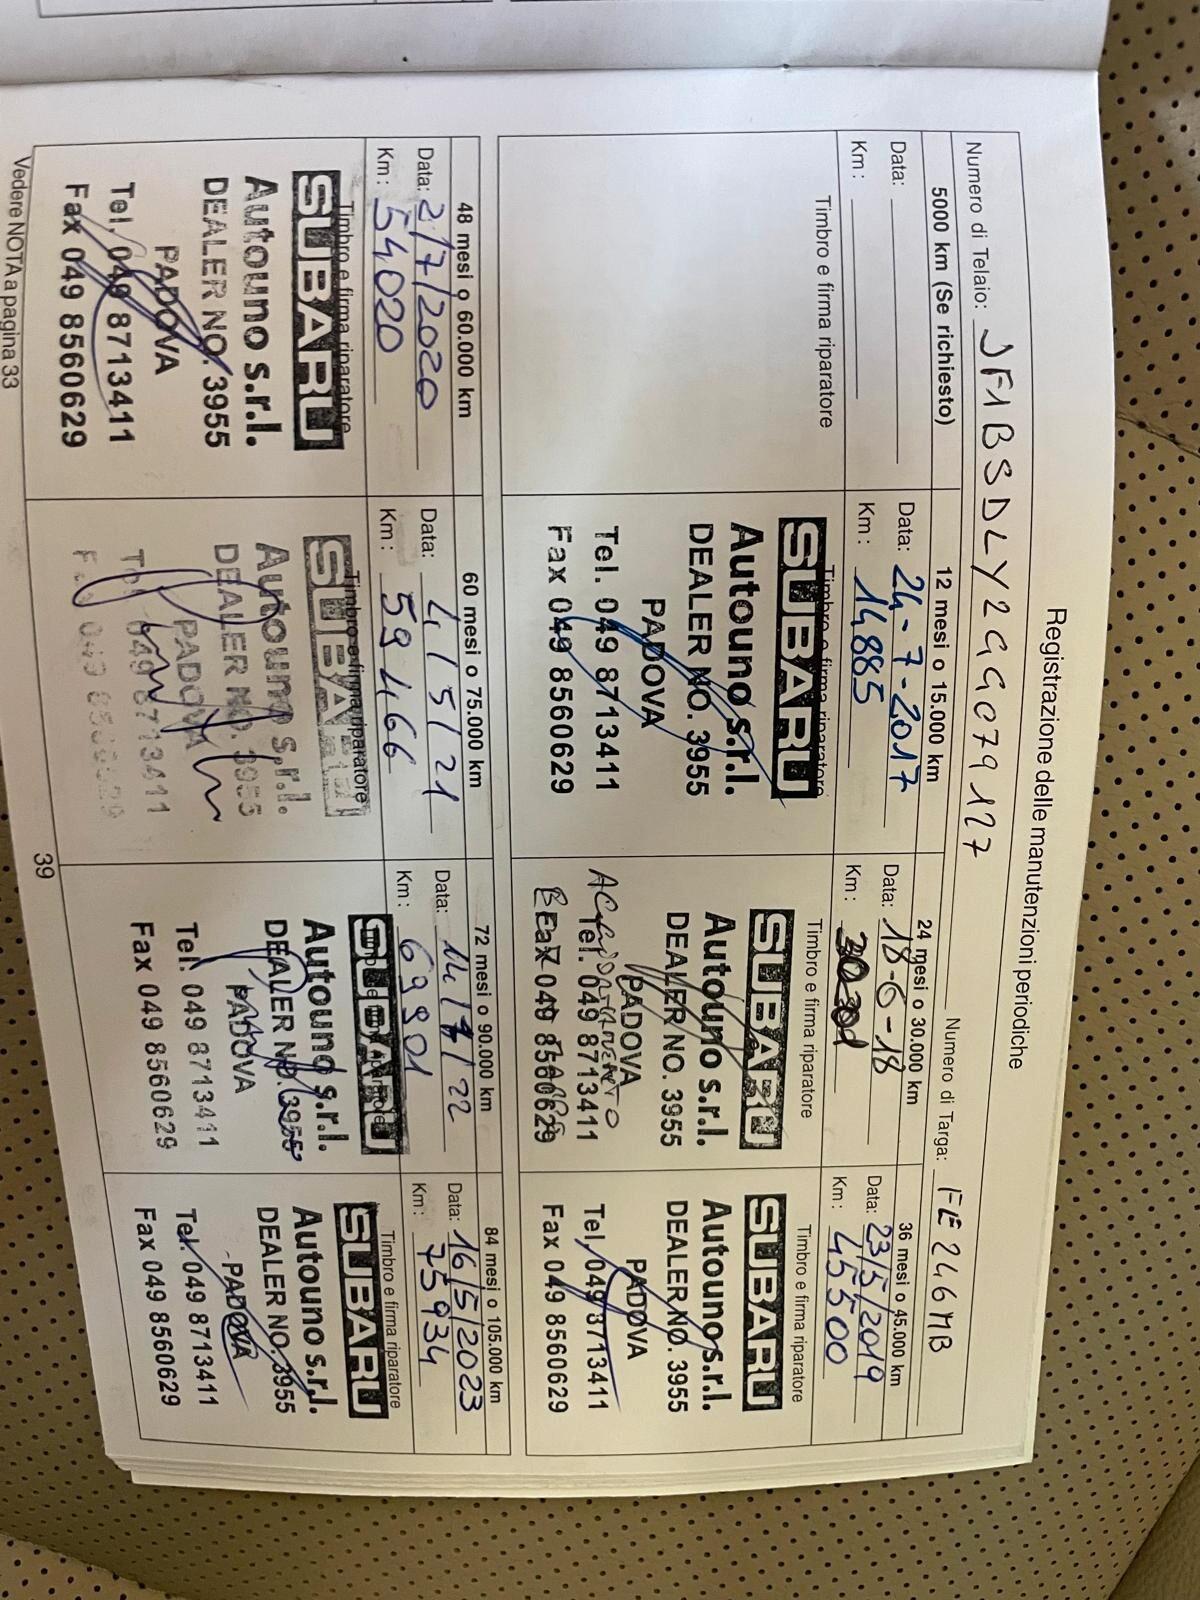 Registrazione delle manutenzioni periodiche
Numero di Telaio: JF1BSDLY2GG079127
Numero di Targa: FE246MB
5000 km (Se richiesto)
Data:
Km:
Timbro e firma riparatore
12 mesi o 15.000 km
Data: 24-7-2017
Km: 14885
Timbro e firma riparatore
SUBARU
Autouno s.r.l.
DEALER NO. 3955
PADOVA
Tel. 049 8713411
Fax 049 8560629
24 mesi o 30.000 km
Data: 18-6-18
Km:
Timbro e firma riparatore
SUBARU
Autouno s.r.l.
DEALER NO. 3955
PADOVA
Tel. 049 8713411
Fax 049 8560629
36 mesi o 45.000 km
Data: 23/5/2019
Km: 45500
Timbro e firma riparatore
SUBARU
Autouno s.r.l.
DEALER NO. 3955
PADOVA
Tel. 049 8713411
Fax 049 8560629
48 mesi o 60.000 km
Data: 2/7/2020
Km: 54020
Timbro e firma riparatore
SUBARU
Autouno s.r.l.
DEALER NO. 3955
PADOVA
Tel. 049 8713411
Fax 049 8560629
60 mesi o 75.000 km
Data: 4/5/21
Km: 59466
Timbro e firma riparatore
SUBARU
Autouno s.r.l.
DEALER NO. 3955
PADOVA
Tel. 049 8713411
Fax 049 8560629
72 mesi o 90.000 km
Data: 14/7/22
Km: 69901
Timbro e firma riparatore
SUBARU
Autouno s.r.l.
DEALER NO. 3955
PADOVA
Tel. 049 8713411
Fax 049 8560629
84 mesi o 105.000 km
Data: 16/5/2023
Km: 75934
Timbro e firma riparatore
SUBARU
Autouno s.r.l.
DEALER NO. 3955
PADOVA
Tel. 049 8713411
Fax 049 8560629
Vedere NOTA a pagina 33
39